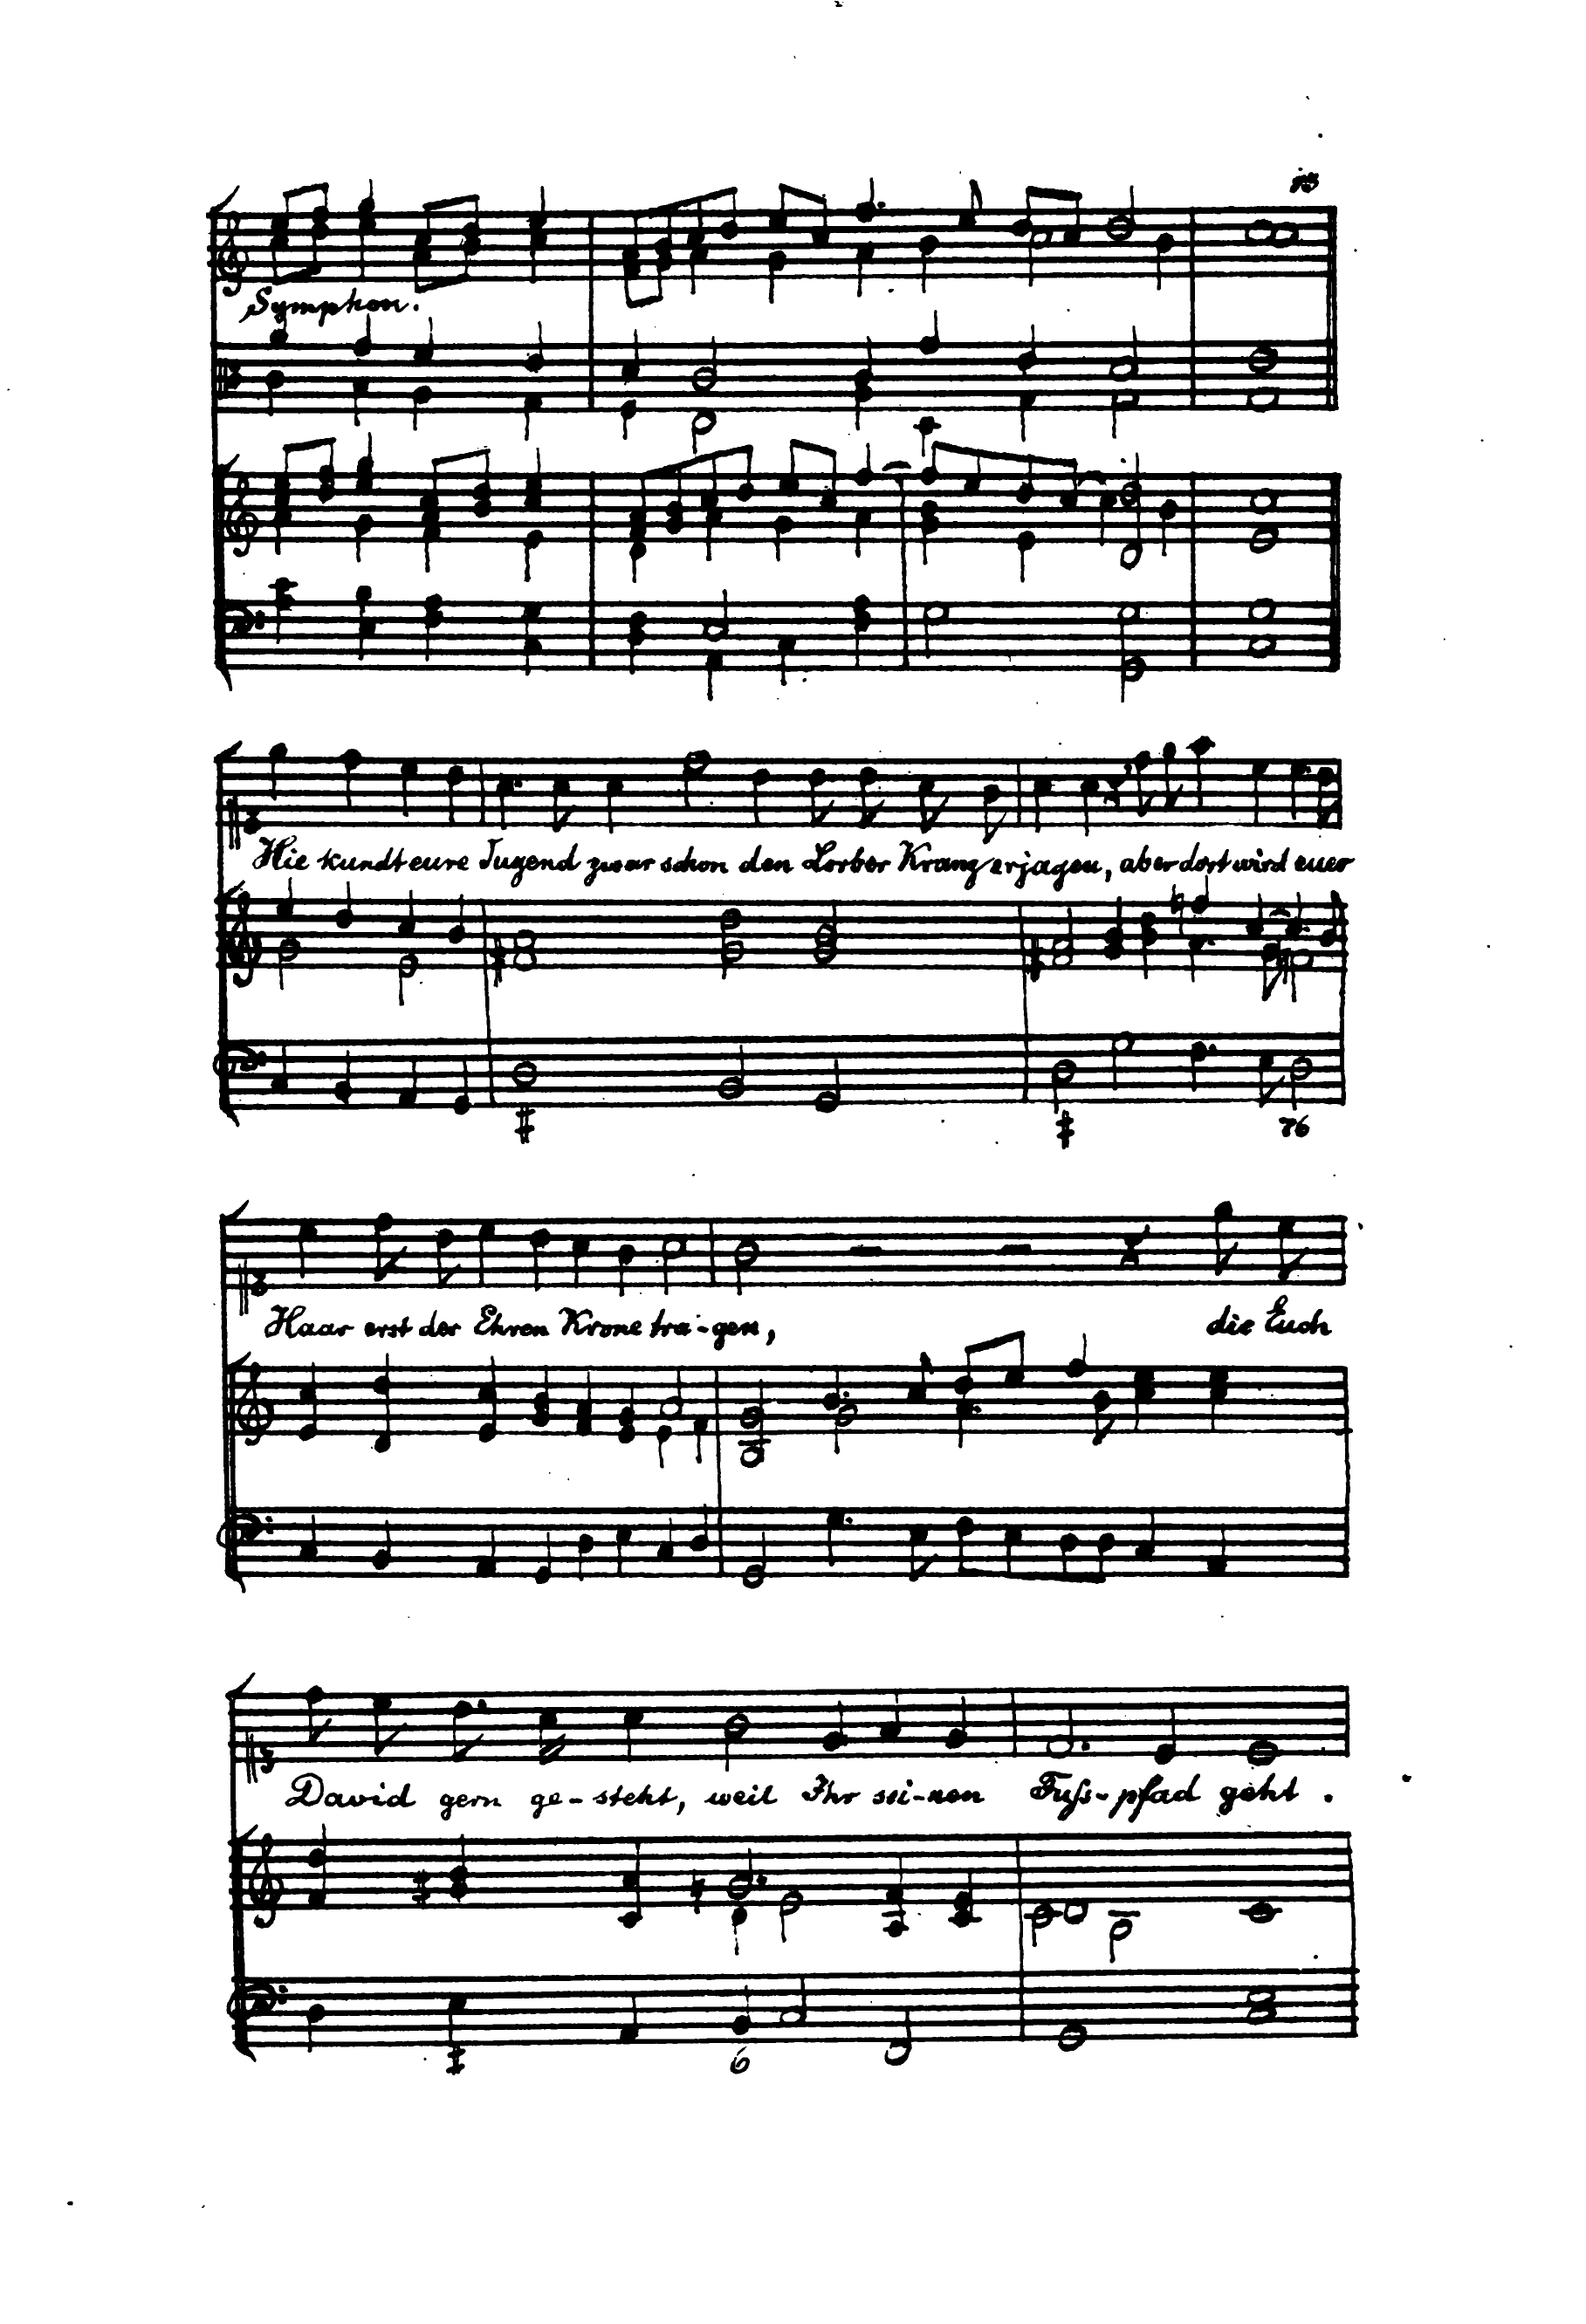 13
Symphon.
Hie kundt eure Tugend zwar schon den Lorber Kranz erjagen, aber dort wird euer
76
Haar erst der Ehren Krone tra-gen, die Euch
David gern ge-steht, weil Ihr sei-nen Fuss-pfad geht.
6